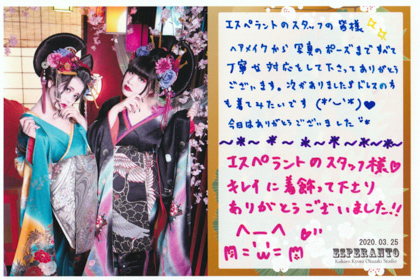 エスペラントのスタッフの皆様
ヘアメイクから写真のポーズまですべて
丁寧な対応をして下さってありがとう
ございます。次がありましたらドレスの方
も着てみたいです (*'︶'*)♥
今日はありがとうございました
エスペラントのスタッフ様♡
キレイに着飾って下さり
ありがとうございました!!
2020. 03. 25
ESPERANTO